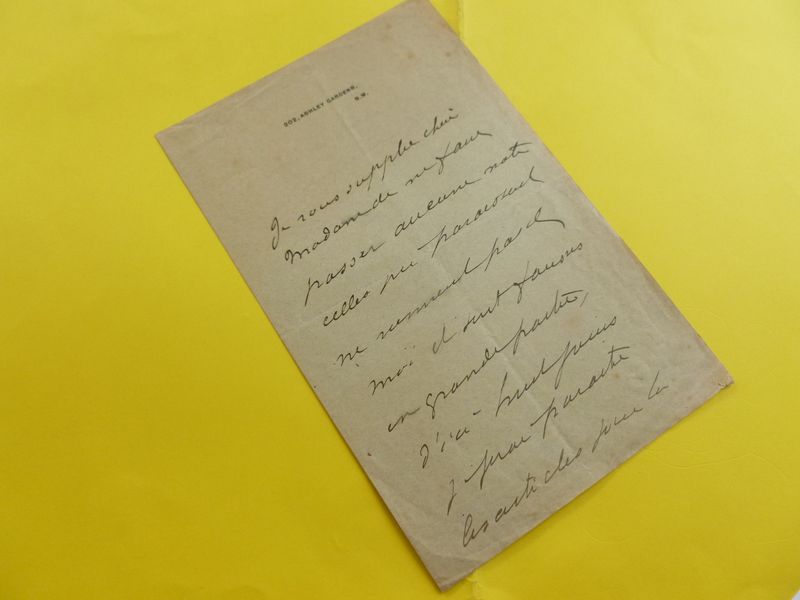 202, ASHLEY GARDENS,
S.W.
Je vous supplie chère
Madame de ne faire
passer aucune note
celles qui paraissent
ne viennent pas de
moi et sont fausses
en grande partie,
d'ici huit jours
je ferai paraitre
les articles pour la